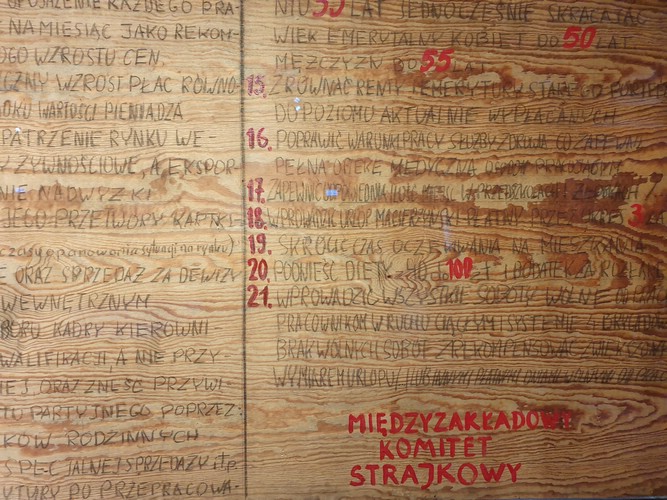 OPOJAZENIE KAŻDEGO PRA-
NA MIESIĄC JAKO REKOM-
OGO WZROSTU CEN.
CZNY WZROST PŁAC RÓWNO-
OKU WARTOŚCI PIENIĄDZA
PATRZENIE RYNKU WE-
Y ŻYWNOŚCIOWE, A EKSPOR-
NIE NADWYŻKI
JEGO PRZETWORY KARTKI
czasu opanowania sytuacji na rynku)
E ORAZ SPRZEDAŻ ZA DEWIZY
WEWNĘTRZNYM
BORU KADRY KIEROWNI-
WALIFIKACJI, A NIE PRZY-
NEJ, ORAZ ZNEŚĆ PRZYWI-
TU PARTYJNEGO POPRZEZ:
KÓW RODZINNYCH
SPECJALNEJ SPRZEDAŻY itp.
UTURY PO PRZEPRACOWA-
NIU 35 LAT JEDNOCZEŚNIE SKRACAJĄC
WIEK EMERYTALNY KOBIET DO 50 LAT
MĘŻCZYZN DO 55 LAT.
15. ZRÓWNAĆ RENTY I EMERYTURY STAREGO PORTFELA
DO POZIOMU AKTUALNIE WYPŁACANYCH
16. POPRAWIĆ WARUNKI PRACY SŁUŻBY ZDROWIA CO ZAPEWNI
PEŁNĄ OPIEKĘ MEDYCZNĄ OSOBOM PRACUJĄCYM
17. ZAPEWNIĆ ODPOWIEDNIĄ ILOŚĆ MIEJSC W PRZEDSZKOLACH I ŻŁOBKACH
18. WPROWADZIĆ URLOP MACIERZYŃSKI PŁATNY PRZEZ OKRES 3
19. SKRÓCIĆ CZAS OCZEKIWANIA NA MIESZKANIA
20. PODNIEŚĆ DIETY DO 100 ZŁ I DODATEK ZA ROZŁĄKĘ
21. WPROWADZIĆ WSZYSTKIE SOBOTY WOLNE OD PRACY
PRACOWNIKOM W RUCHU CIĄGŁYM I SYSTEMIE 4-BRYGADOWYM
BRAK WOLNYCH SOBÓT ZREKOMPENSOWAĆ ZWIĘKSZONYM
WYMIAREM URLOPU LUB INNYMI PŁATNYMI DNIAMI WOLNYMI OD PRACY
MIĘDZYZAKŁADOWY
KOMITET
STRAJKOWY